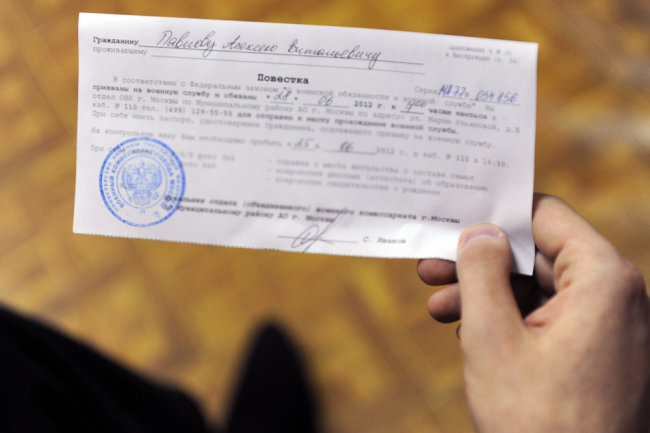 Гражданину Павлову Алексею Витальевичу
приложение к № 30
проживающему
к Инструкции (п. 34)
Повестка
Серия МВ77 № 034856
В соответствии с Федеральным законом "О воинской обязанности и военной службе" Вы
призваны на военную службу и обязаны "28" 06 2012 г. к 9 00 часам явиться в
отдел ОВК г. Москвы по Муниципальному району АО г. Москвы по адресу: ул. Марии Ульяновой, д.5
каб. № 110 тел. (499) 129-55-55 для отправки к месту прохождения военной службы.
При себе иметь паспорт, удостоверение гражданина, подлежащего призыву на военную службу.
На контрольную явку Вам необходимо прибыть "25" 06 2012 г. в каб. № 110 к 12:30.
При
фото 3х4 - справка с места жительства о составе семьи
- ксерокопия диплома (аттестата) об образовании
- ксерокопия свидетельства о рождении
Начальник отдела (объединенного) военного комиссариата г.Москвы
по Муниципальному району АО г. Москвы
С. Иванов
ВОЕННЫЙ КОМИССАРИАТ